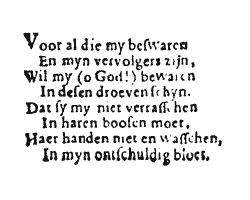 Voor al die my beswaren
En myn vervolgers zijn,
Wil my (o God!) bewaren
In desen droeven schyn.
Dat sy my niet verrasschen
In haren boosen moet,
Haer handen niet en wasschen,
In myn ontschuldig bloet.